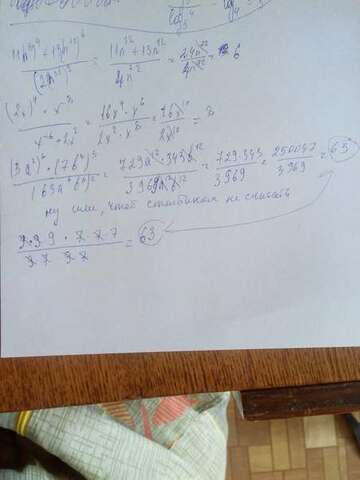 \frac{11n^{3^4} + 13n^{2^6}}{(2n^4)^3} = \frac{11n^{12} + 13n^{12}}{4n^{12}} = \frac{24n^{12}}{4n^{12}} = 6
\frac{(2x)^4 \cdot x^{-3}}{x^{-6} \cdot 2x^2} = \frac{16x^4 \cdot x^6}{2x^2 \cdot x^8} = \frac{16x^{10}}{2x^{10}} = 8
\frac{(3a^2)^6 \cdot (7b^4)^3}{(63a^6b^6)^2} = \frac{729a^{12} \cdot 343b^{12}}{3969a^{12}b^{12}} = \frac{729 \cdot 343}{3969} = \frac{250047}{3969} = 63
ну или, чтоб столбиком не считать
\frac{3 \cdot 3 9 \cdot 7 \cdot 7 \cdot 7}{3 \cdot 7 \cdot 3 \cdot 7} = 63